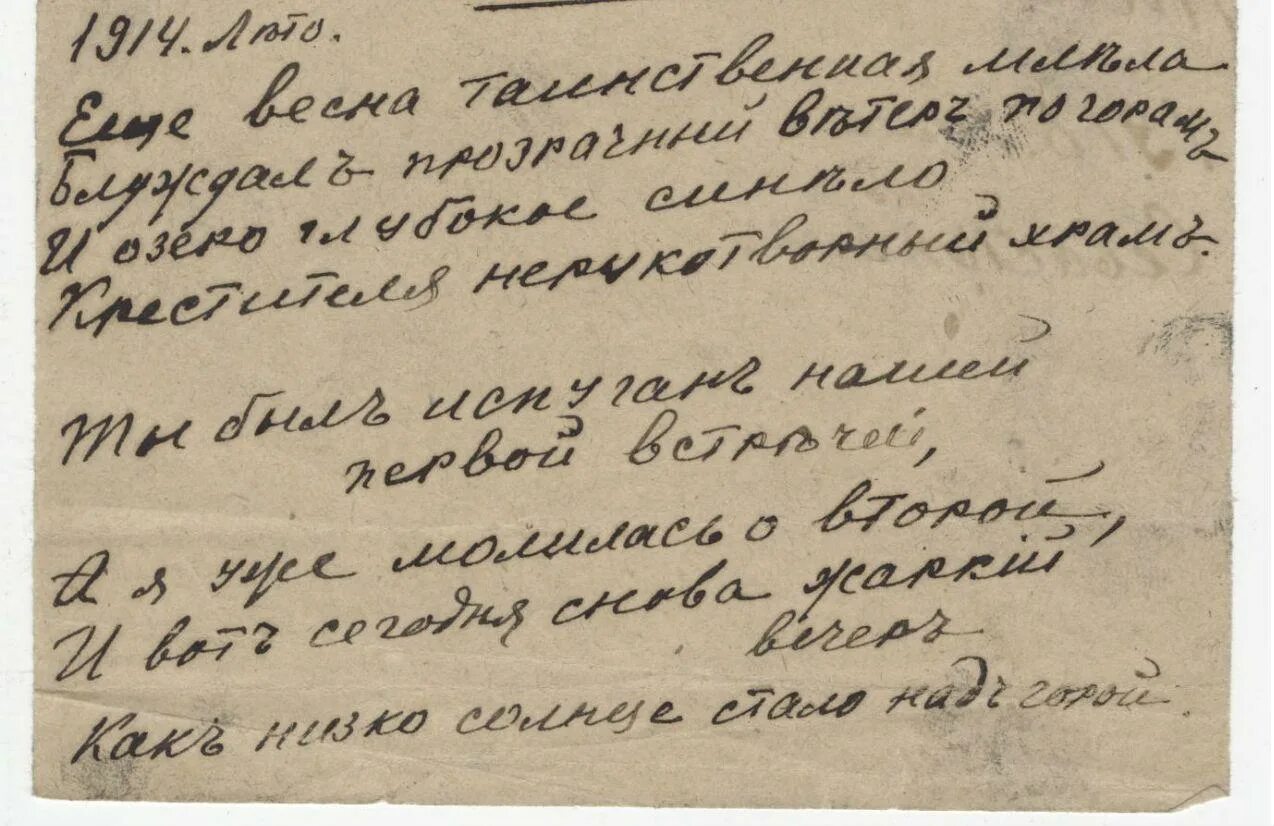 1914. Лѣто.
Еще весна таинственная млѣла
Блуждалъ прозрачный вѣтеръ по горамъ
И озеро глубокое синѣло
Крестителя нерукотворный храмъ.
Ты былъ испуганъ нашей
первой встрѣчей,
А я уже молилась о второй,
И вотъ сегодня снова жаркій
вечеръ
Какъ низко солнце стало надъ горой.